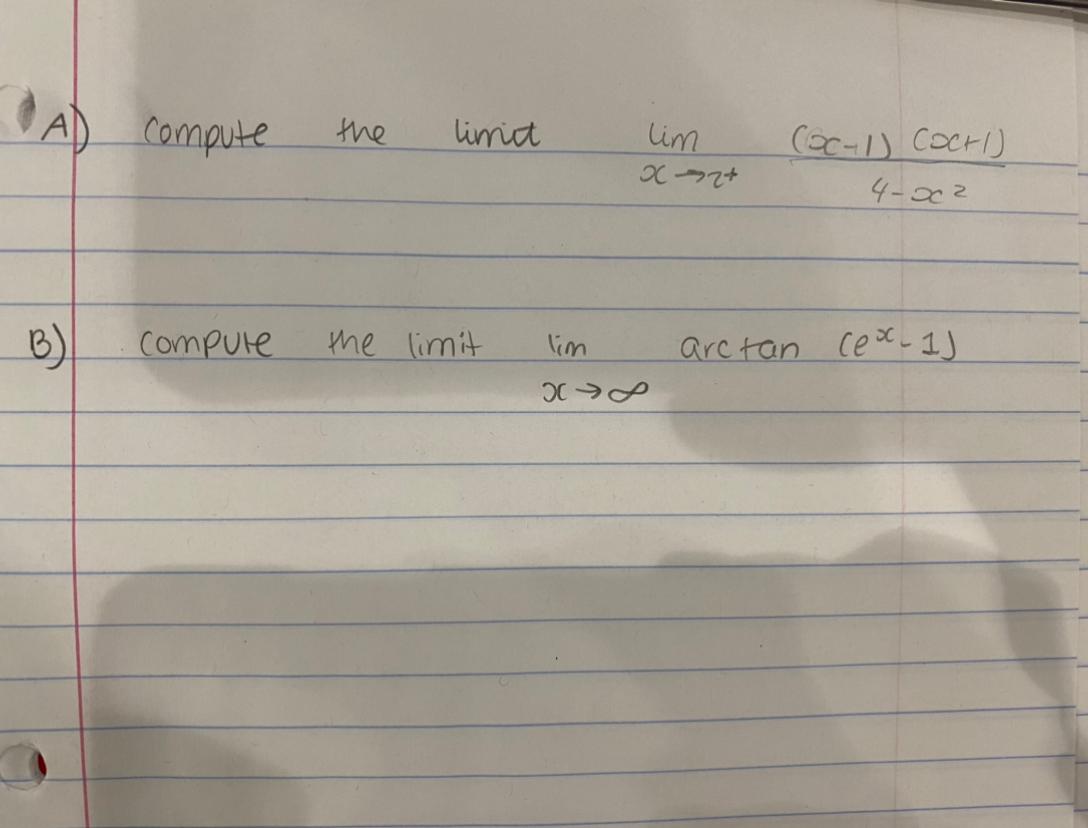 A) compute the limit lim (x-1) (x+1)
x→2+ 4-x²
B) compute the limit lim arctan (eˣ-1)
x→∞